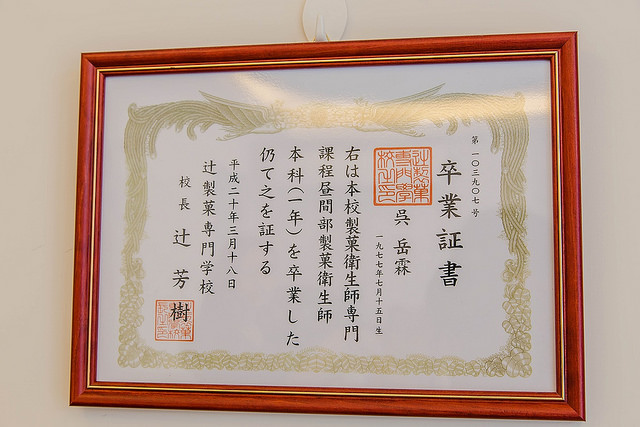 第一〇三九〇七号
卒業証書
呉岳霖
一九七七年七月十五日生
右は本校製菓衛生師専門
課程昼間部製菓衛生師
本科(一年)を卒業した
仍て之を証する
平成二十年三月十八日
辻製菓専門学校
校長 辻 芳樹